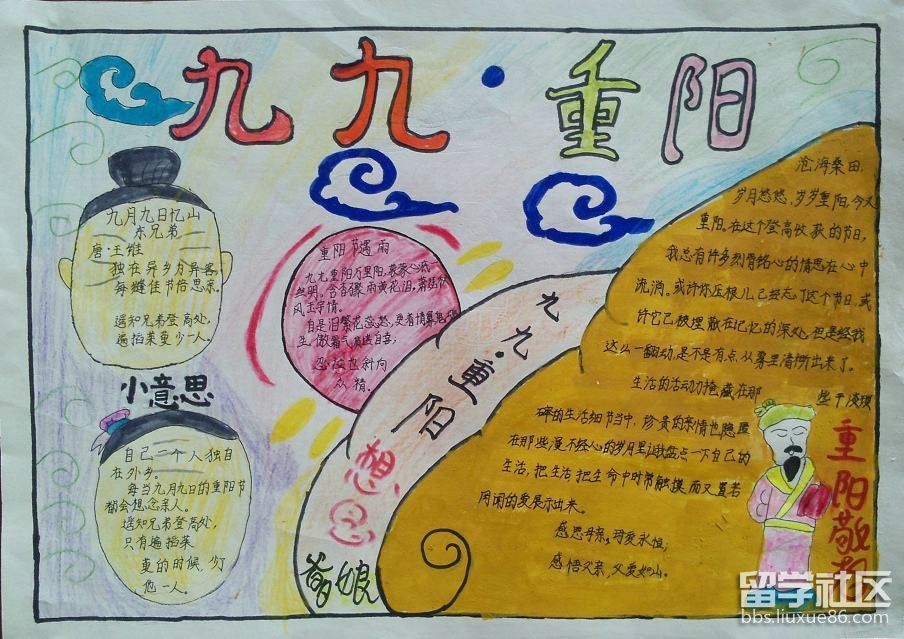 九九·重阳
九月九日忆山
东兄弟
唐·王维
独在异乡为异客
每缝佳节倍思亲。
遥知兄弟登高处,
遍插茱萸少一人。
小意思
自己一个人独自
在外乡。
每当九月九日的重阳节
都会想念亲人。
遥知兄弟登高处,
只有遍插茱萸
的时候,少了
他一人。
重阳节遇雨
九九重阳万里阳,
九九·重阳
想思
爹娘
沧海桑田,
岁月悠悠,岁岁重阳,今又
重阳。在这个登高的节日,
我总有许多刻骨铭心的情思在心中
流淌。或许你压根儿已经忘了这个节日,或
许它已被埋藏在记忆的深处,但是经我
这么一翻动,是不是有点从雾里清晰出来了。
生活的活动力掩藏在那
些平淡琐
碎的生活细节当中,珍贵的亲情也隐匿
在那些漫不经心的岁月里让我盘点一下自己的
生活,把生活把生命中时常触摸而又置若
罔闻的爱展示出来。
感恩母亲,母爱永恒;
感悟父亲,父爱如山。
重阳敬老
留学社区
bbs.liuxue86.com